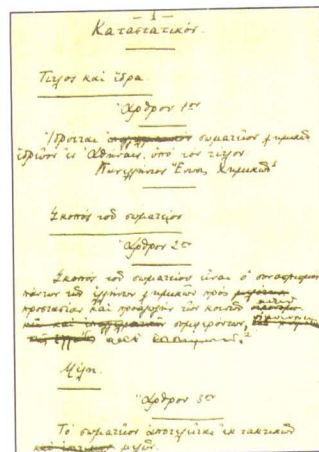 — 1 —
Καταστατικόν.
Τίτλος καὶ ἕδρα.
Ἄρθρον 1ον
Ἱδρύεται σωματεῖον χημικῶν
ἑδρεῦον ἐν Ἀθήναις, ὑπὸ τὸν τίτλον
Πανελλήνιος Ἕνωσις Χημικῶν
Σκοπὸς τοῦ σωματείου
Ἄρθρον 2ον
Σκοπὸς τοῦ σωματείου εἶναι ὁ
πάντων τῶν Ἑλλήνων χημικῶν πρὸς
προστασίαν καὶ προαγωγὴν τῶν κοινῶν
καὶ συμφερόντων,
Μέλη.
Ἄρθρον 3ον
Τὸ σωματεῖον ἀποτελεῖται ἐκ τακτικῶν
μελῶν.